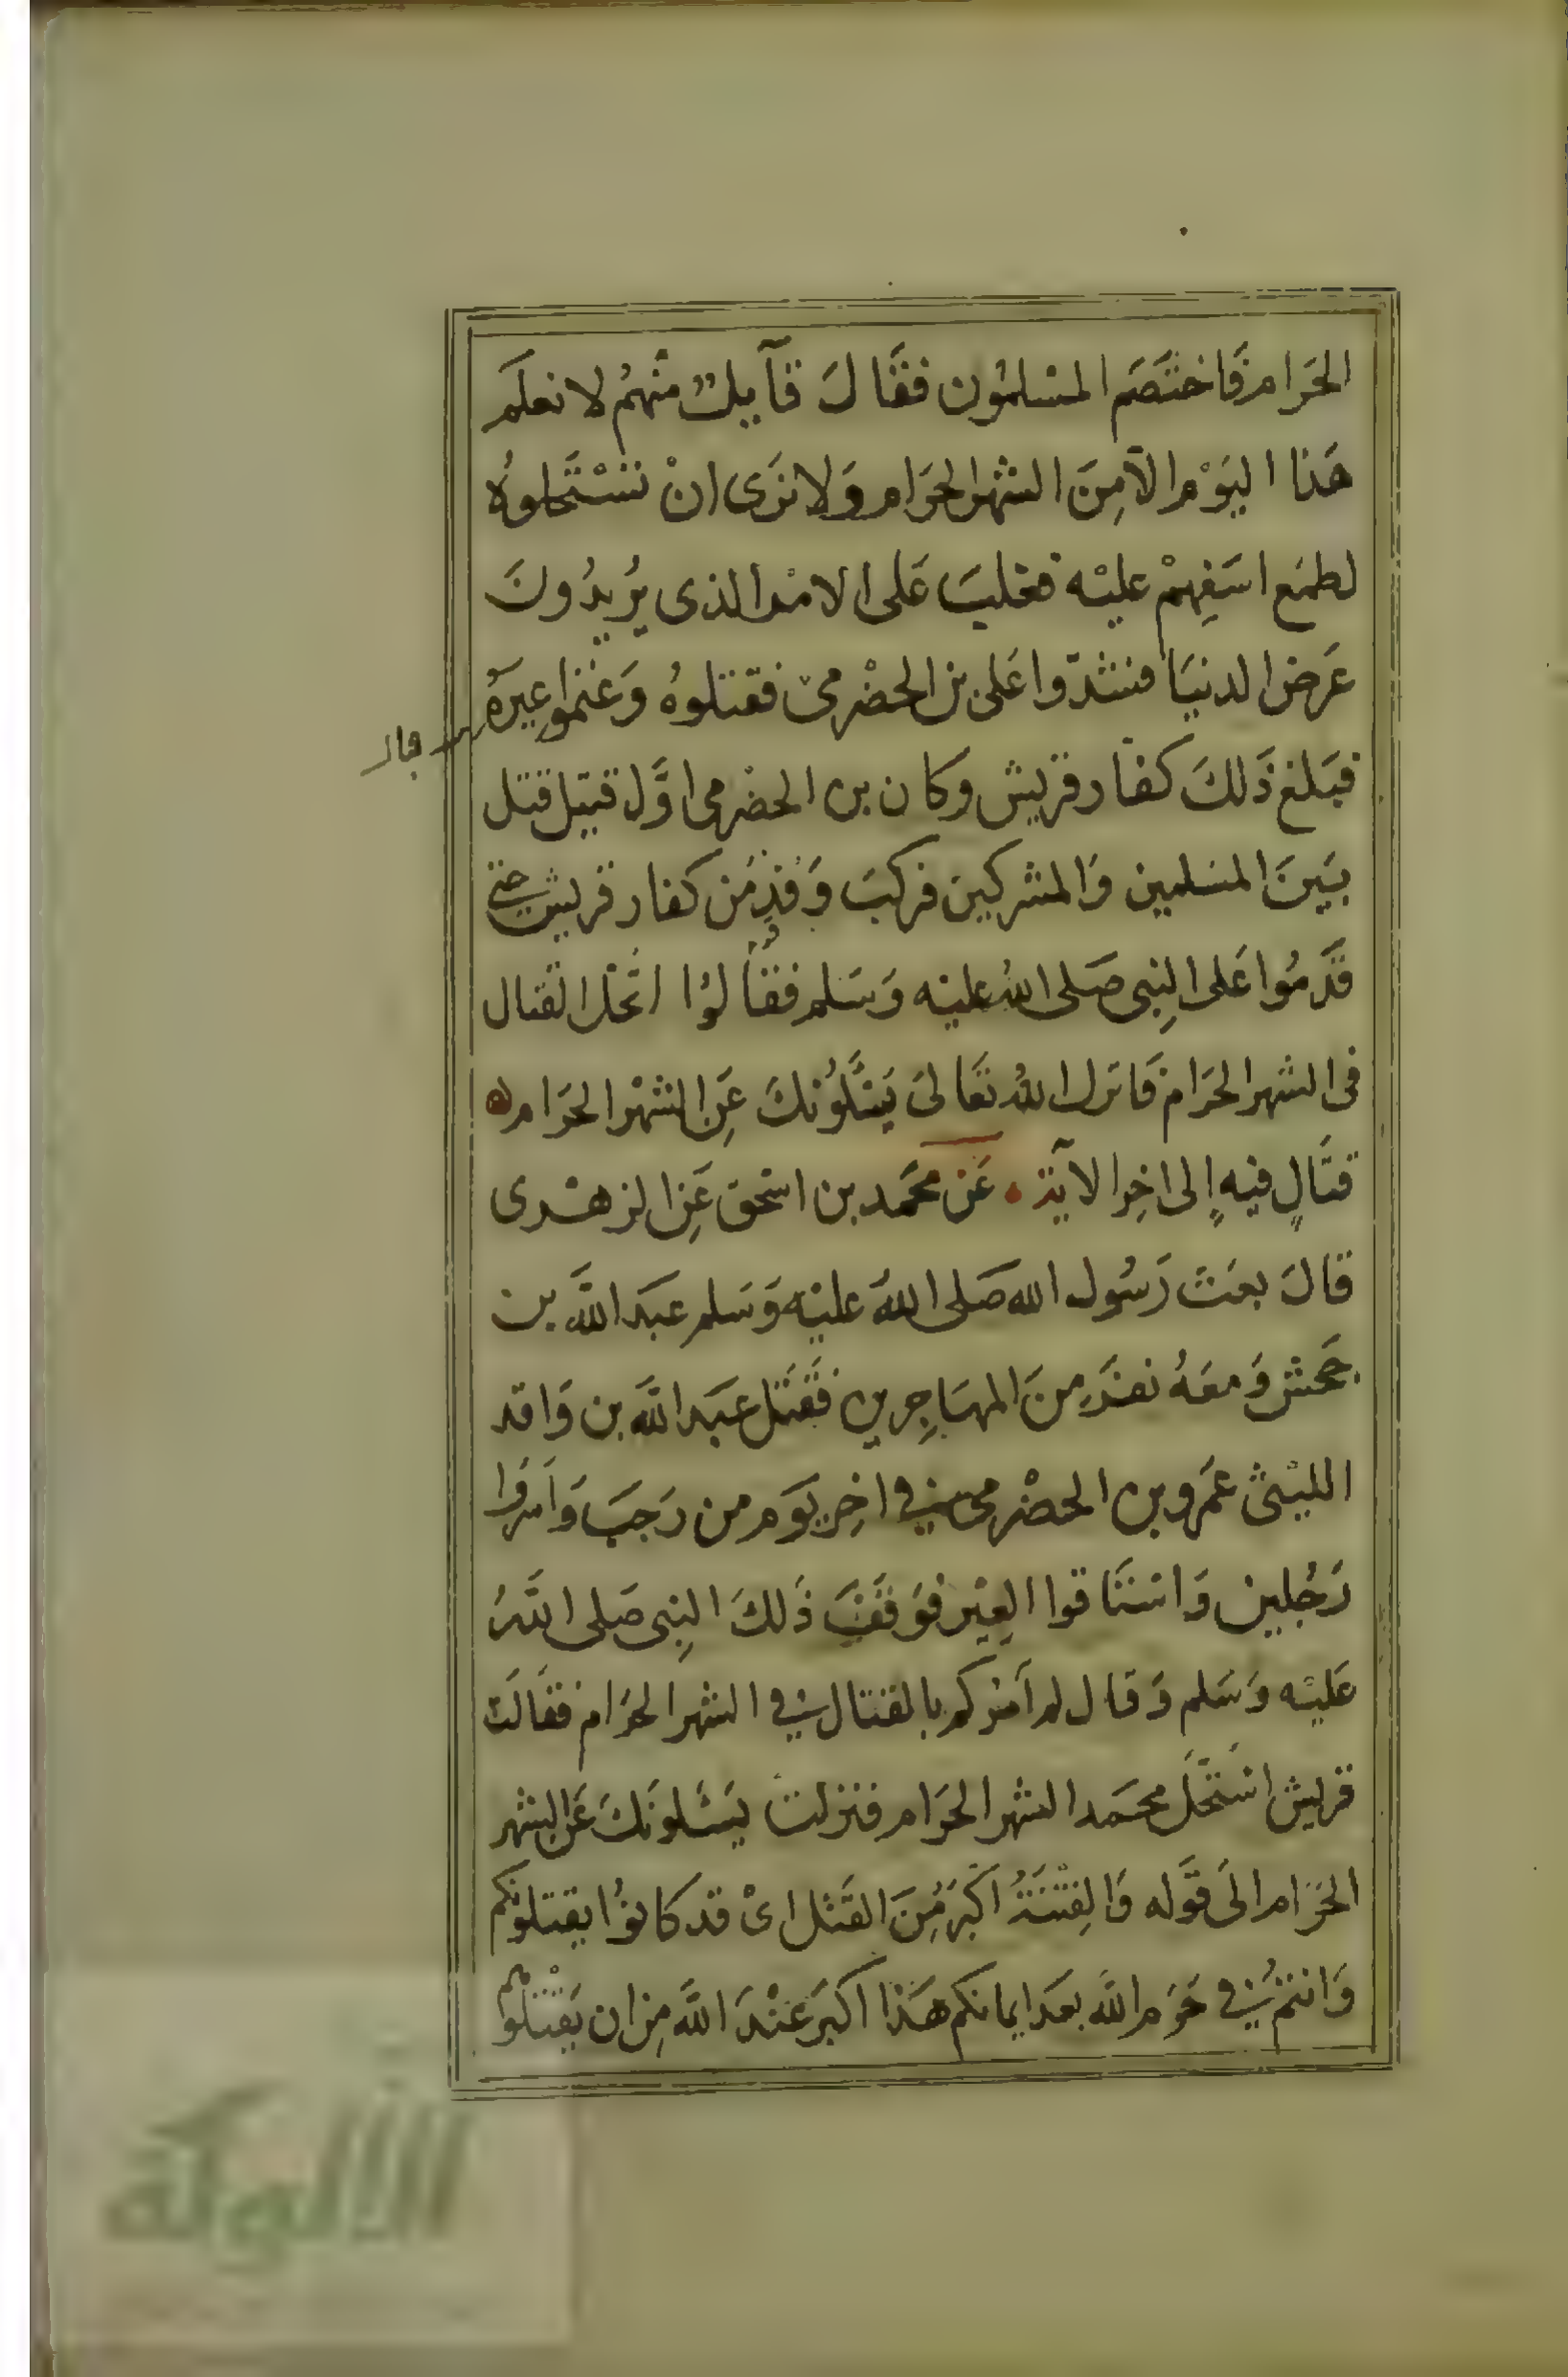 الحَرَام فَاختَصَم المسْلمُون فقَالَ قآيلٌ منْهُم لا نعلَم
هَذا اليَوْم الاّ مِنَ الشهر الحَرَام وَلا نرَى انْ تسْتَحلوهُ
لطمَع اسَفِهمْ عليْه فغلبَ عَلى الامْر الذى يُريدُونَ
عَرَضَ الدنيَا فشدّوا عَلى بن الحضْرمىّ فقتلوهُ وَغنموا عِيرَهُ
فبَلغ ذَلكَ كفار قريش وَكان بن الحضْرمى اوَّل قتيل قتل
بَينَ المسَلمين وَالمشركين فركبَ وَفدٌ مَن كفار قريش حتى
قَدَمُوا عَلى النِبى صَلى اللهُ عليْه وَسَلم فقالوُا اتُحَل القتال
فى الشهر الحَرَام فَانزل اللهُ تعَالىَ يَسَئَلُونكَ عَنِ الشهْر الحَرَام
قتَالٍ فيهِ إلى اخِر الآية عَن محَمد بن اسْحق عَنِ الزهْرى
قالَ بعَثَ رَسُول الله صَلى اللهُ عليْه وَسَلم عبَد اللَّه بن
جَحش وَمعَهُ نفرَ مِنَ المهَاجِرين فقَتَل عبَد اللَّه بن وَاقد
الليْثىّ عَمرو بن الحضْرمى فى اخِر يوَم من رَجبَ وَاَسَرُوا
رَجُلين وَاسْتَاقوا العِيْر فوَقفَ ذَلكَ النِبى صَلى اللَّهُ
عَليْه وَسَلم وَقال لم آمُركم بالقتال فى الشهر الحَرَام فقَالَتْ
قريش اسْتَحَلَّ محَمد الشهر الحَرَام فنزلت يَسْئلونَكَ عَنِ الشهر
الحَرَام الىَ قَوله وَالفِتْنَةُ اكَبرَ مِنَ القَتْل اىْ قد كانوُا يقتلونكم
وَانتمْ فى حَرَم اللَّه بعَد ايمانكم هَذا اكبَر عنْدَ اللَّه مِن ان يَقتْلوُهم
الألوكة